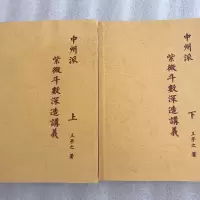 中州派
紫微斗數深造講義
上
王亭之 著
中州派
紫微斗數深造講義
下
王亭之 著